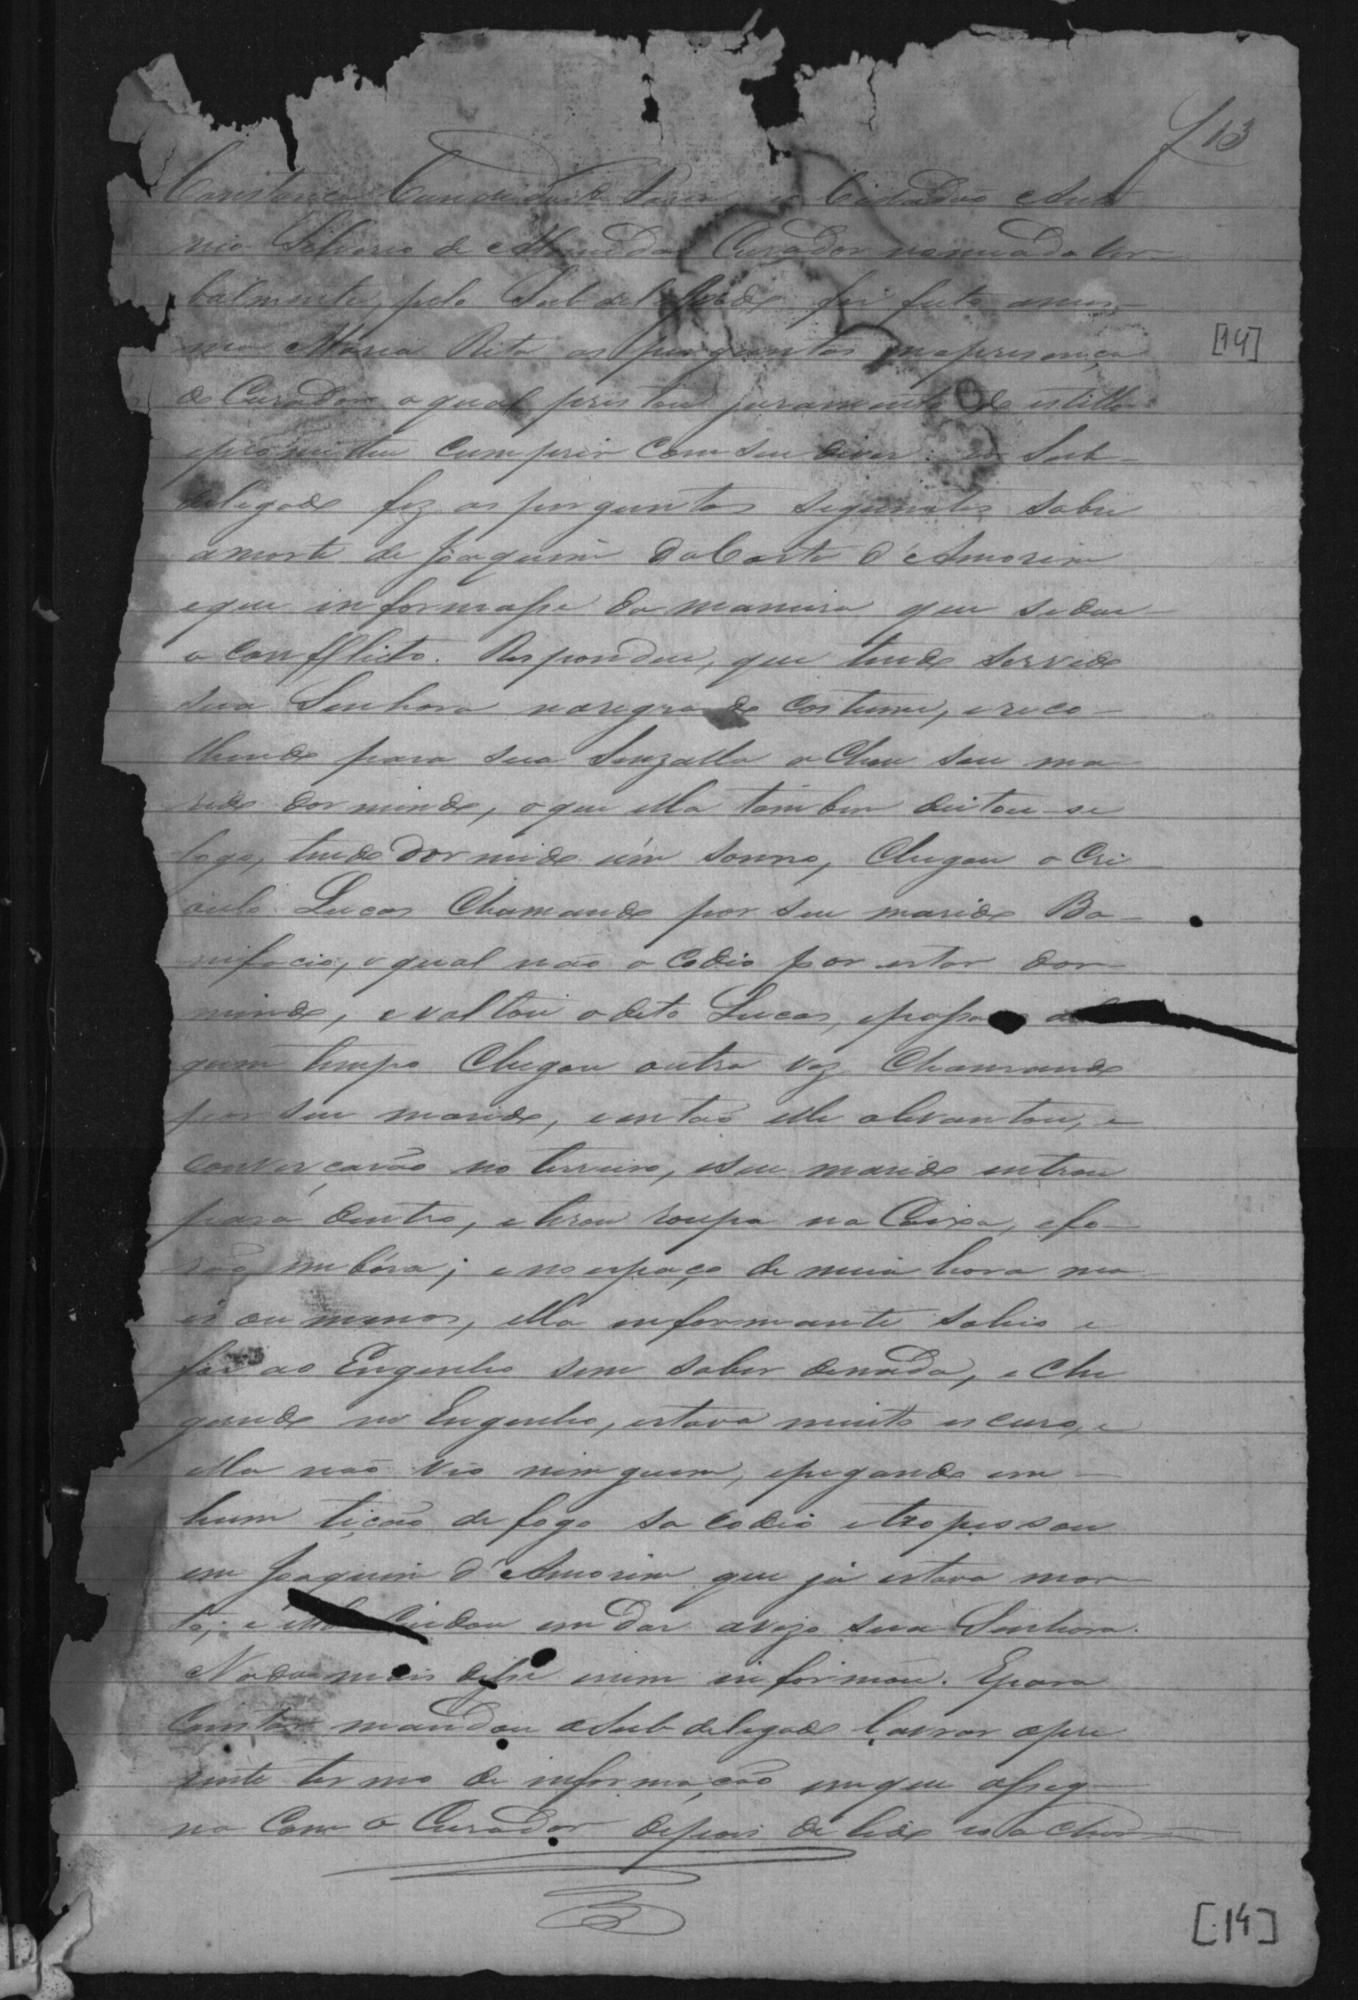 f 13
Constança Candida de Faria e Cidadão Anto
nio Silverio de Almeida Curador nomeado ver-
balmente, pelo Subdelegado foi feito a mes-
ma Maria Rita as perguntas na presença
[14]
do Curador o qual prestou juramento de estillo
eprometteu cumprir com seu dever. o Sub-
delegado fez as perguntas seguintes sobre
amorte de Joaquim da Costa d'Amorim
eque informasse da maneira que sedeu
o conffleito. Respondeu, que tendo servido
sua Senhora naregra do costume, ereco-
lhendo para sua Senzalla achou seu ma-
rido dormindo, oque ella tambem deitou-se
logo, tendo dormido úm sonno, chegou o Cri
oulo Lucas chamando por seu marido Bo-
nifacio, o qual não acodio por estar dor-
mindo, evoltou odito Lucas, epassado al
gum tempo chegou outra vez chamando
por seu marido, então elle alevantou, e
converçarão no terreiro, eseu marido entrou
para dentro, etirou roupa na Caixa, efo-
rão embóra; enoespaço de meia hora ma
is ou menos, ella informante sahio e
foi ao Engenho sem saber denada, e che
gando no Engenho, estava muito escuro, e
ella não vio ninguem, epegando em
hum tição de fogo sacodio etropessou
em Joaquim d'Amorim que já estava mor-
to; e ella cuidou em dar avizo sua Senhora.
Nada mais disse enem informou. Epara
constar mandou oSubdelegado lavrar opre
zente termo de informação emque asseg-
na com o Curador depois de lido e achar
[14]